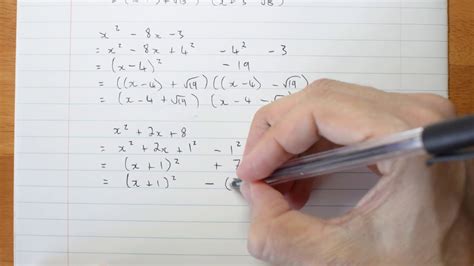 x² - 8x - 3
= x² - 8x + 4² - 4² - 3
= (x-4)² - 19
= ((x-4) + √19)((x-4) - √19)
= (x-4 + √19)(x-4 -
x² + 2x + 8
= x² + 2x + 1² - 1²
= (x+1)² + 7
= (x+1)² - (